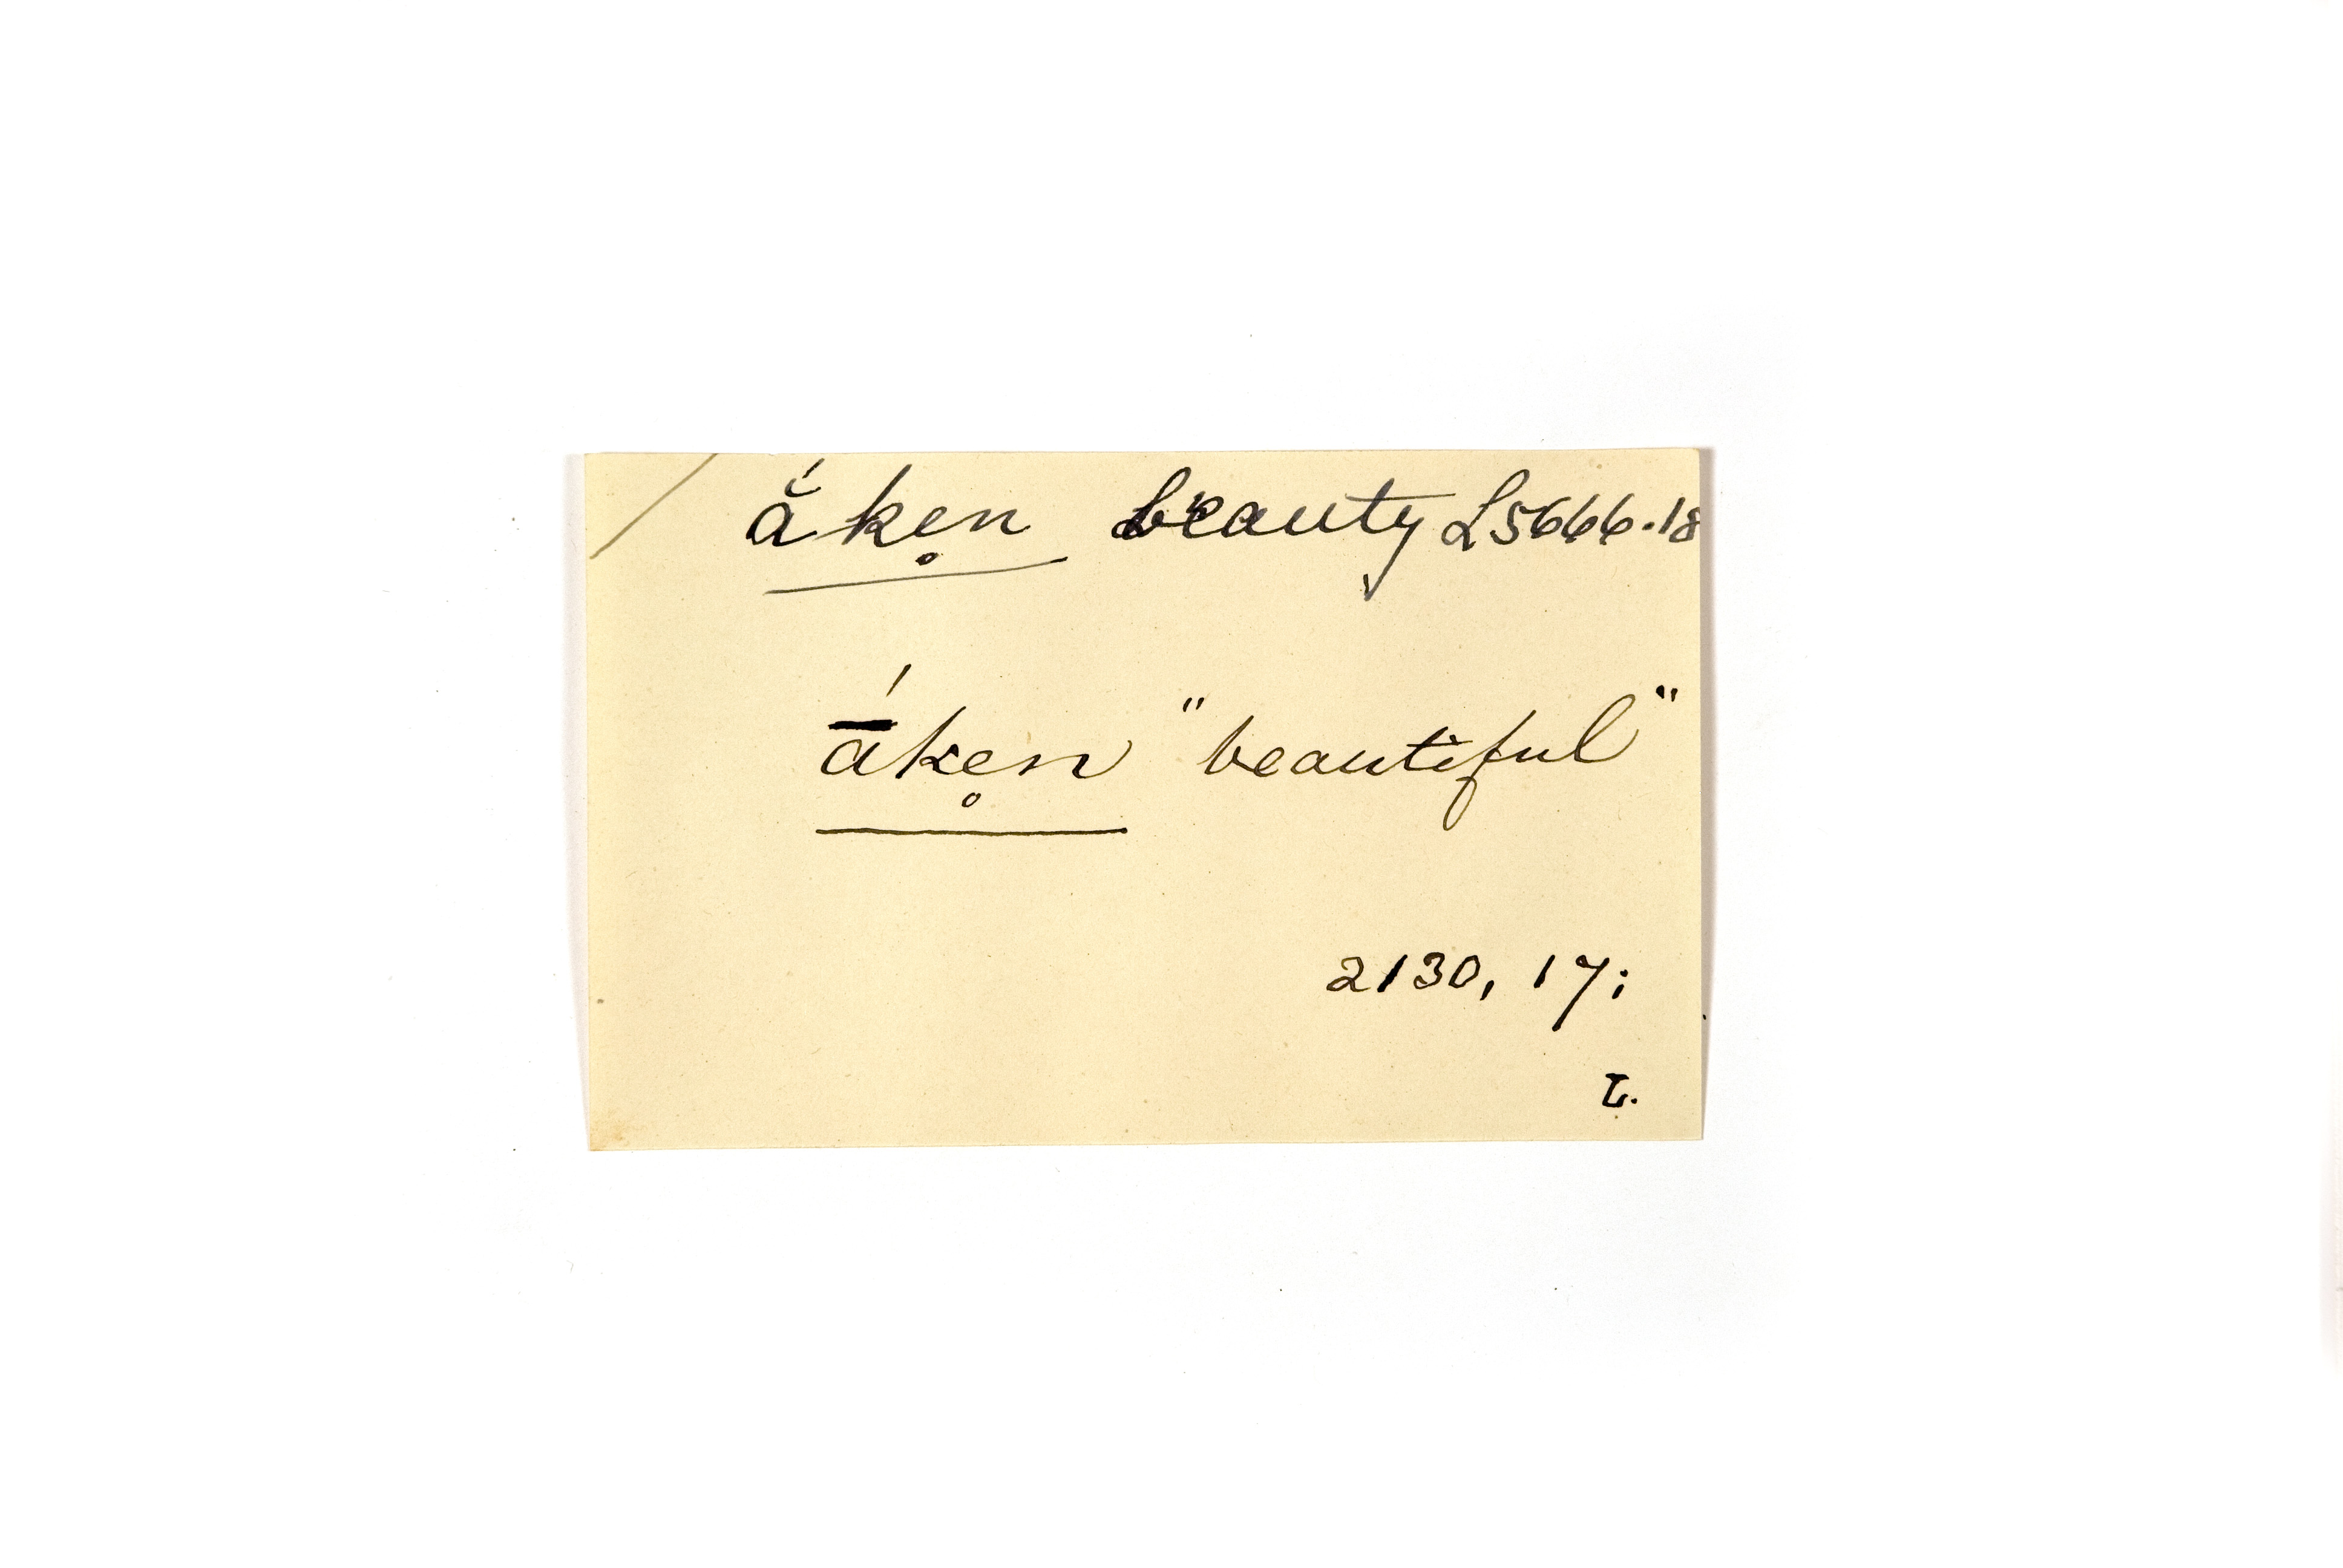 ắke̥n beauty L5666.18
ā́ke̥n "beautiful"
2130, 17;
L.